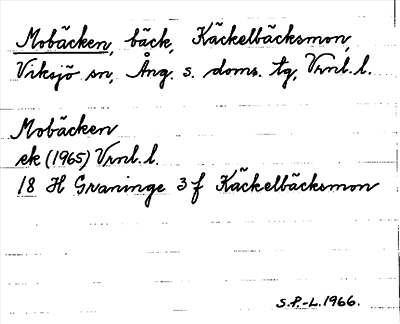 Mobäcken, bäck, Käckelbäcksmon,
Viksjö sn, Ång. s. doms. tg, Vrnl. l.
Mobäcken
ek (1965) Vrnl. l.
18 H Graninge 3 f Käckelbäcksmon
S.P.-L. 1966.